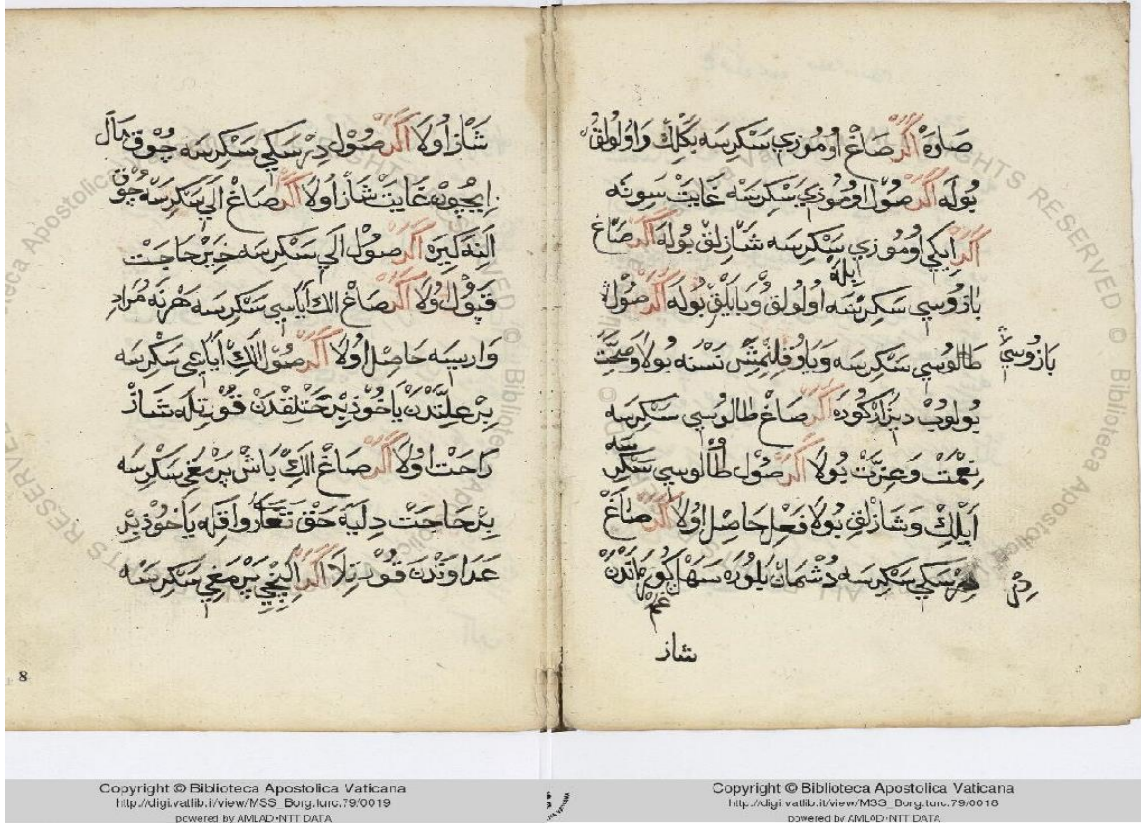 صاره اكر صاغ اوموزي سكرسه بكلك و اولولق
بوله اكر صول اوموزي سكرسه غايت سونه
اكر ايكي اوموزي سكرسه شاذلق بوله اكر صاغ
ايله
بازوسي سكرسه اولولق وبايلق بوله اكر صول
بازوسي
طالوسي سكرسه وياوقلنمش نسنه بولا وصحت
بولوب ديزار كوره اكر صاغ طالوسي سكرسه
نعمت وعزت بولا اكر صول طالوسي سكرسه
ايلك وشاذلق بولا فعل حاصل اولا اكر صاغ
درسكي سكرسه دشمان يلوره
غم
شاز
شاز اولا اكر صول درسكي سكرسه چوق مال
ايچون غايت شاز اولا اكر صاغ الي سكرسه چوق
النه كيره اكر صول الي سكرسه خير حاجت
قبول اولا اكر صاغ الك اياسي سكرسه هرنه مراد
واريسه حاصل اولا اكر صول الك اياعي سكرسه
بر علتدن ياخوذ بر خستلقدن قورتله شاذ
راحت اولا اكر صاغ الك باش پرمغي سكرسه
بر حاجت دليه حق تعالا روا قله ياخوذ بر
عداوتدن قورتلا اكر ايكنجي پرمغي سكرسه
8
Copyright © Biblioteca Apostolica Vaticana
http://digi.vatlib.it/view/MSS_Borg.turc.79/0019
powered by AMLAD-NTT DATA
Copyright © Biblioteca Apostolica Vaticana
http://digi.vatlib.it/view/MSS_Borg.turc.79/0018
powered by AMLAD-NTT DATA